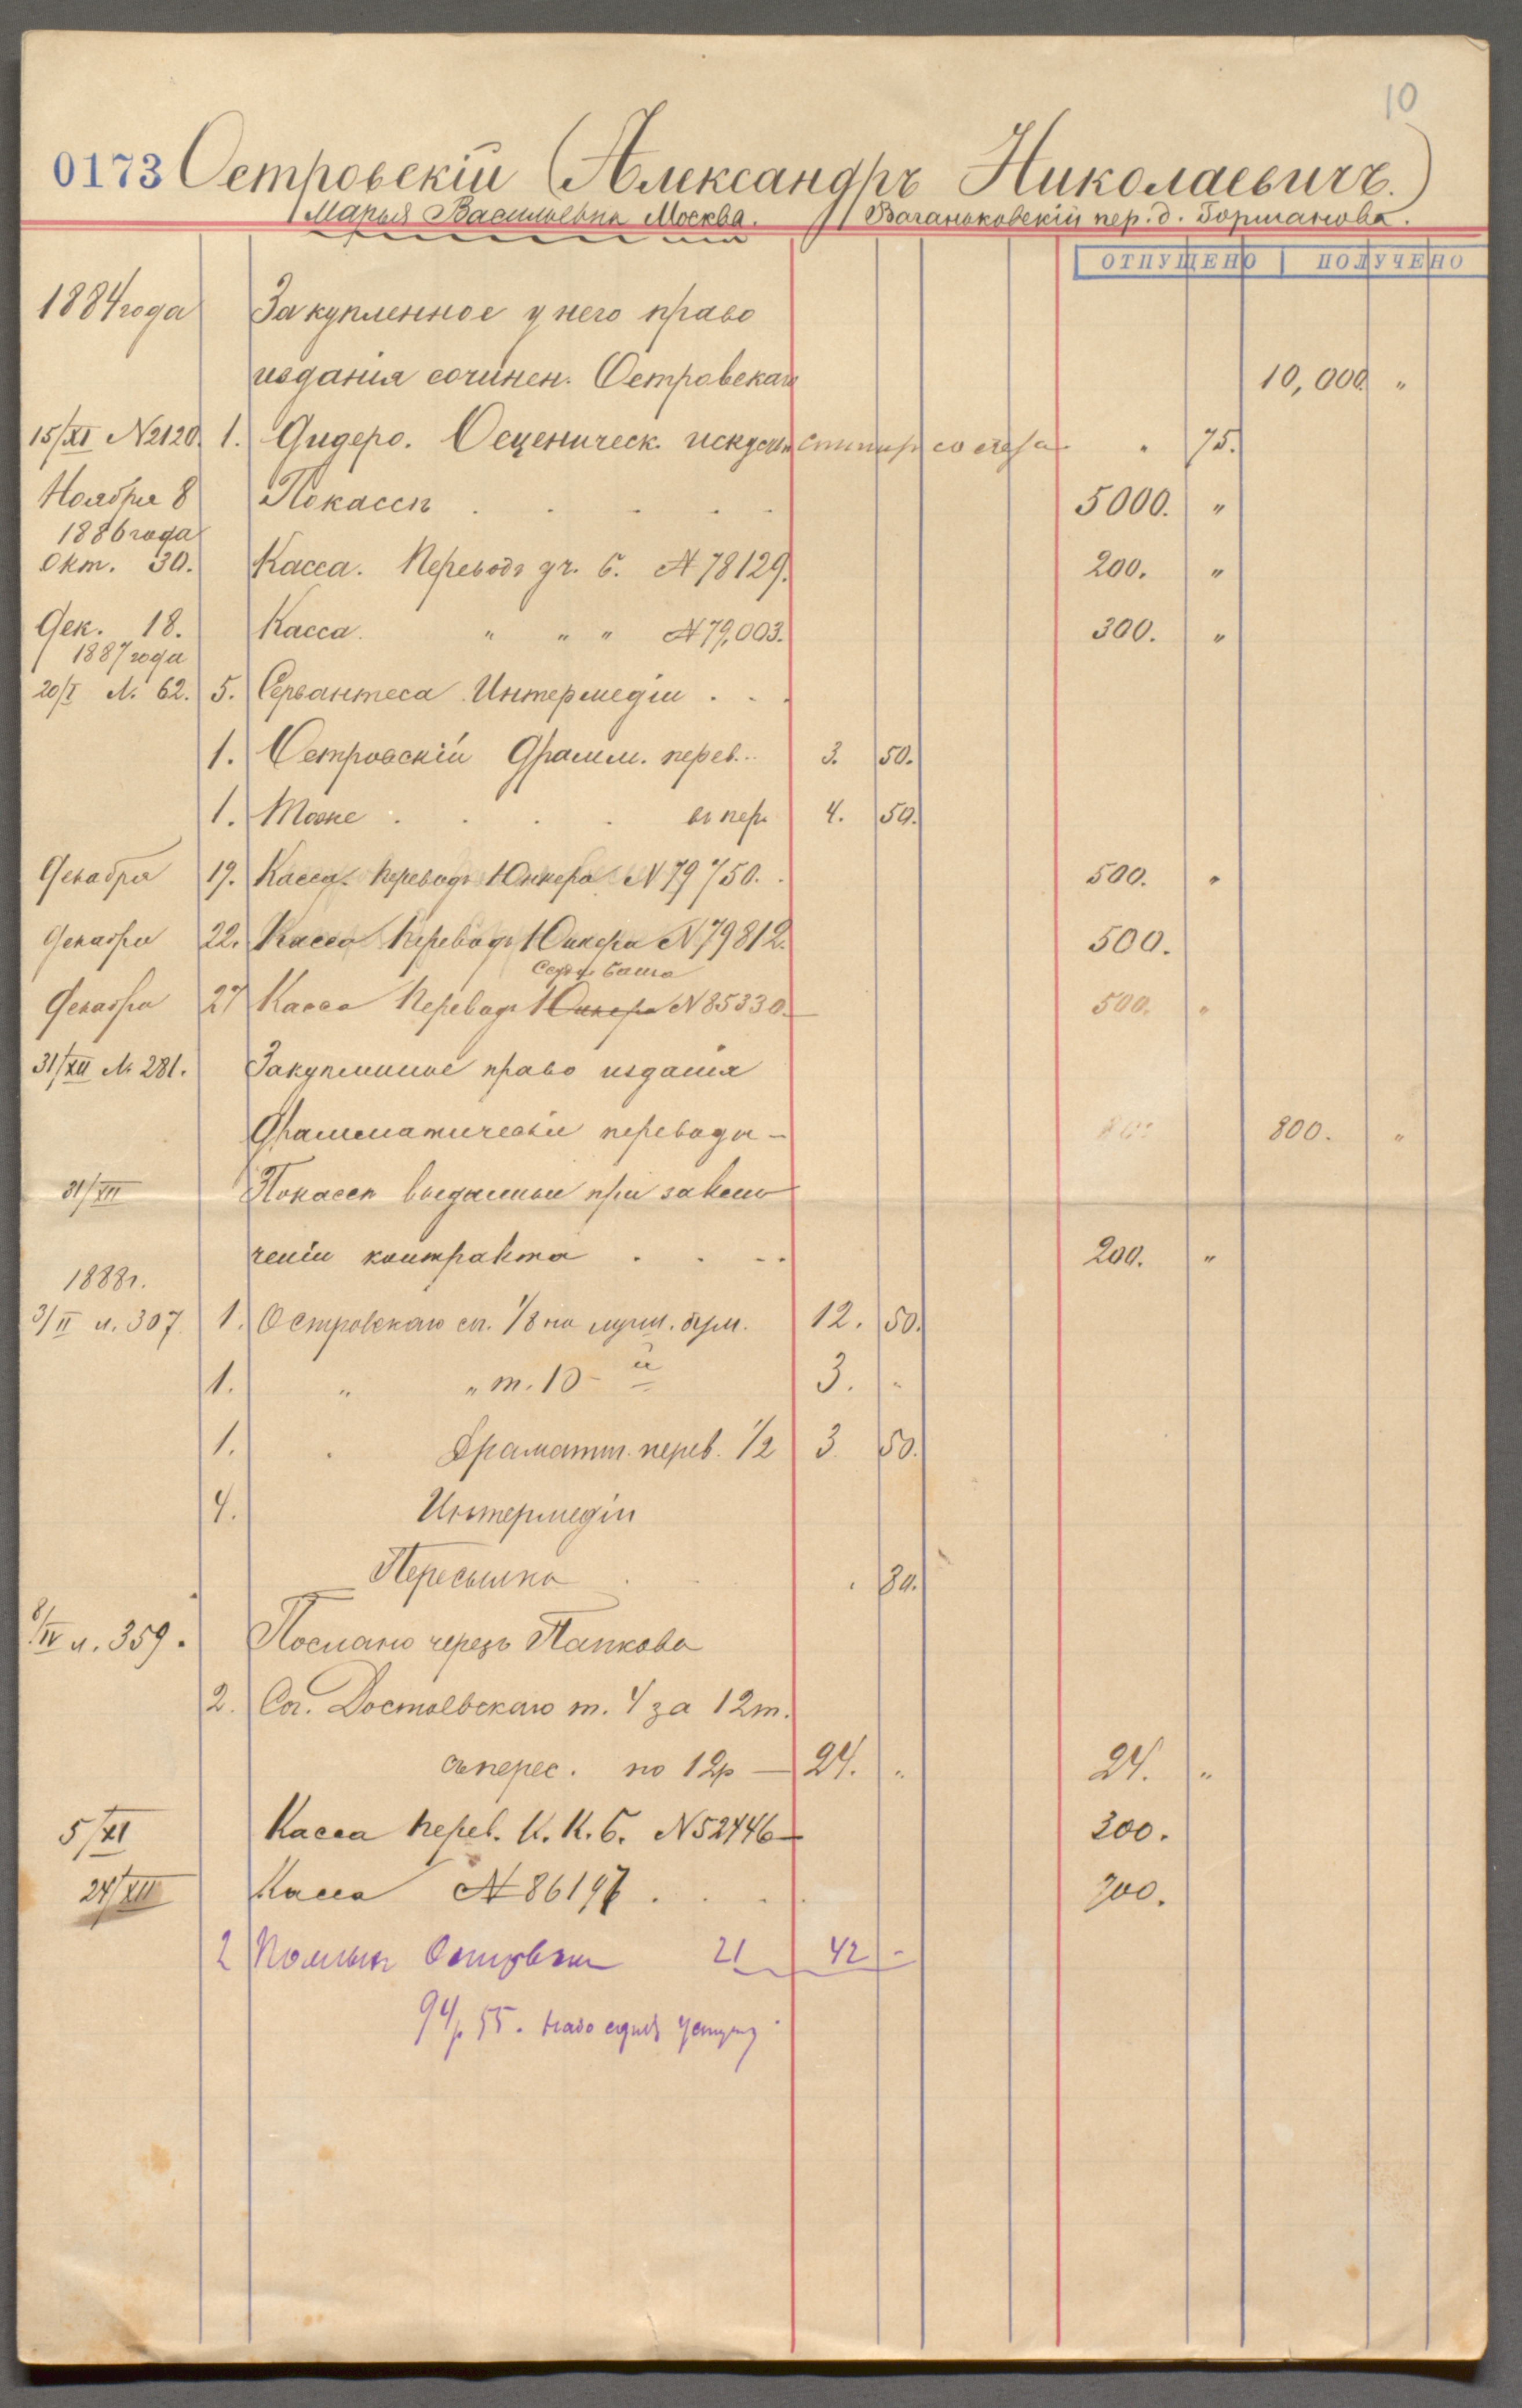 10
0173 Островскій (Александръ Николаевичъ.)
Марья Васильевна Москва. Ваганьковскій пер. д.
ОТПУЩЕНО ПОЛУЧЕНО
1884 года Закупленное у него право
изданія сочинен. Островскаго 10,000 "
15/XI №2120. 1. Дидеро. О сценическ. искуств 75.
Ноября 8 По кассѣ . . . . . 5000. "
1886 года
Окт. 30. Касса. Переводъ уч. б. № 78129. 200. "
Дек. 18. Касса. " " " № 79,003. 300. "
1887 года
20/I №. 62. 5. Сервантеса Интермедіи . . .
1. Островскій Драмм. перев... 3. 50.
1. Тоже . . . . въ пер. 4. 50.
Декабря 19. Касса. переводъ Юнкера № 79750. . 500. "
Декабря 22. Касса Переводъ Юнкера № 79812. 500.
Декабря 27 Касса Переводъ Юнкера № 85330. 500. "
31/XII № 281. Закупленное право изданія
Драмматическіе переводы – 800. "
31/XII По кассѣ выданные при заклю
ченіи контракта . . . . 200. "
1888 г.
3/II л. 307. 1. Островскаго сп. 1/8 на лучш. бум. 12. 50.
1. " " т. 10-й 3. "
1. " Драматич. перев. 1/2 3 50.
4. Интермедіи
Пересылка . . . 80.
8/IV л. 359. Послано черезъ Папкова
2. Соч. Достоевскаго т. 4 за 12 т.
съ перес. по 12 р — 24. " 24. "
5/XI Касса перев. К. К. Б. № 52446 – 300.
24/XII Касса № 86197 . . . . 700.
2 Полныхъ Островскаго 21 42 -
94 р 55. надо